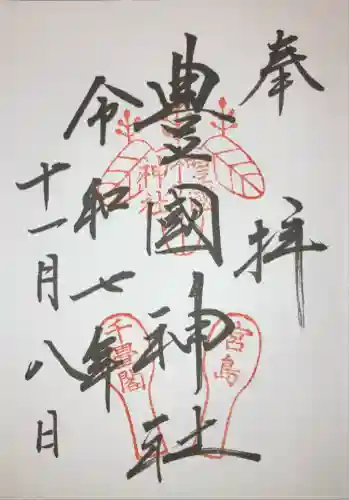 奉拝
豊國神社
令和七年
十一月八日
神社
千畳閣
宮島